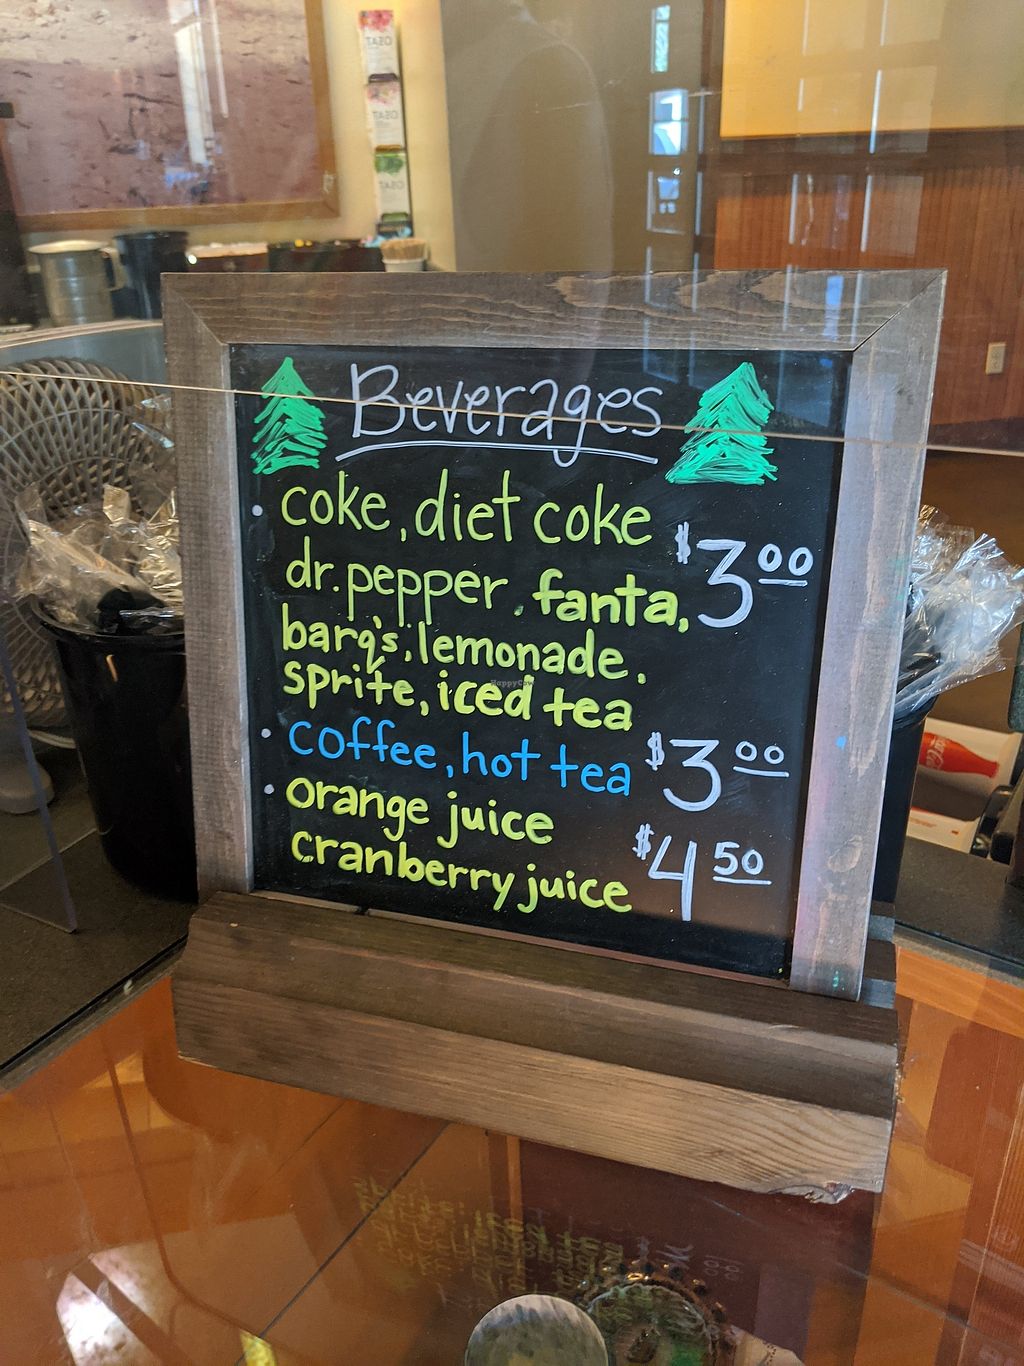 Beverages
• coke, diet coke
dr. pepper, fanta, $3.00
barq's, lemonade,
sprite, iced tea
• coffee, hot tea $3.00
• orange juice
cranberry juice $4.50
HappyCow